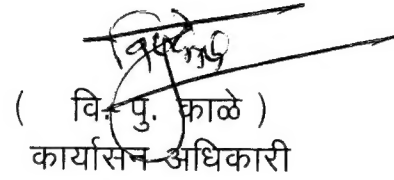 ( वि. पु. काळे )
कार्यासन अधिकारी